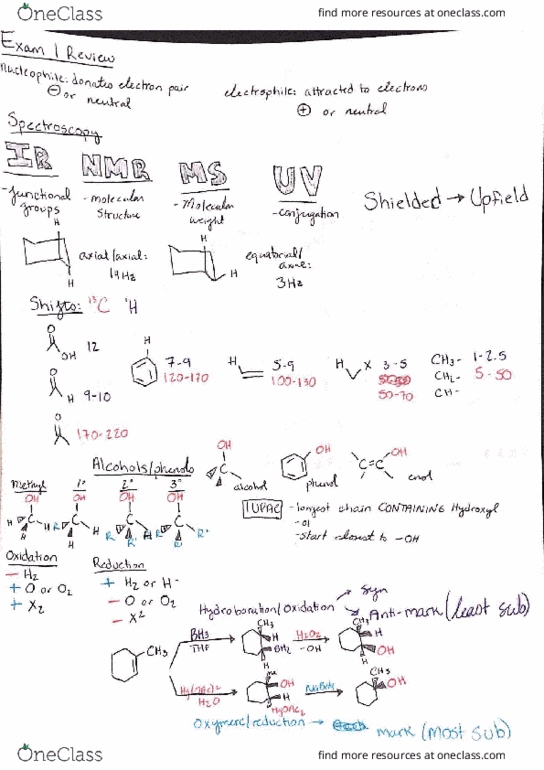 OneClass
find more resources at oneclass.com
Exam 1 Review
Nucleophile: donates electron pair
⊖ or neutral
electrophile: attracted to electrons
⊕ or neutral
Spectroscopy
IR NMR MS UV
-functional groups
-molecular structure
-molecular weight
-conjugation
Shielded → Upfield
H
H
axial/axial:
14Hz
H
H
equatorial/
3Hz
Shifts: ¹³C ¹H
O
OH 12
O
H 9-10
O
170-220
H
7-9
120-170
H
5-9
100-130
H X
3-5
50-70
CH3- 1-2.5
CH2- 5-50
CH-
Alcohols/phenols
methyl 1° 2° 3°
OH OH OH OH
H C H
H
R C H
H
R C H
R'
R C R"
R'
OH
C
alcohol
OH
phenol
C=C OH
enol
IUPAC
-longest chain CONTAINING Hydroxyl
-ol
-start closest to -OH
Oxidation
- H2
+ O or O2
+ X2
Reduction
+ H2 or H-
- O or O2
- X2
Hydroboration/Oxidation
→ syn
→ Anti-mark (least sub)
CH3
BH3
THF
CH3
H
BH2
H
H2O2
-OH
CH3
H
OH
H
Hg(OAc)2
H2O
me
OH
H
HgOAc
NaBH4
CH3
OH
Oxymerc/reduction → mark (most sub)
OneClass
find more resources at oneclass.com